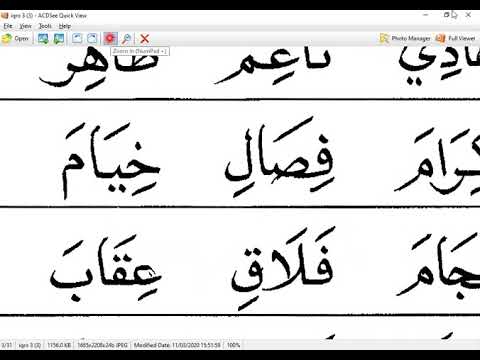 iqro 3 (3) - ACDSee Quick View
File View Tools Help
Open Photo Manager Full Viewer
Zoom In (NumPad +)
نَاعِم طَاهِر
كِرَامَ فِصَالِ خِيَامَ
فَلَاقِ عِقَابَ
3/31 iqro 3 (3) 1156.0 KB 1685x2208x24b JPEG Modified Date: 11/03/2020 15:51:59 100%